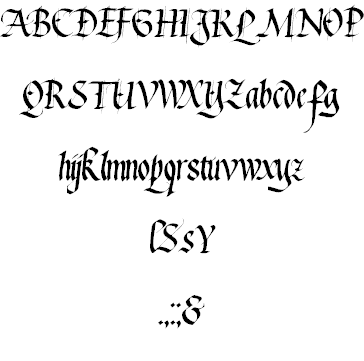 ABCDEFGHIJKLMNOP
QRSTUVWXYZabcdefg
hijklmnopqrstuvwxyz
lSsY
.,:;&